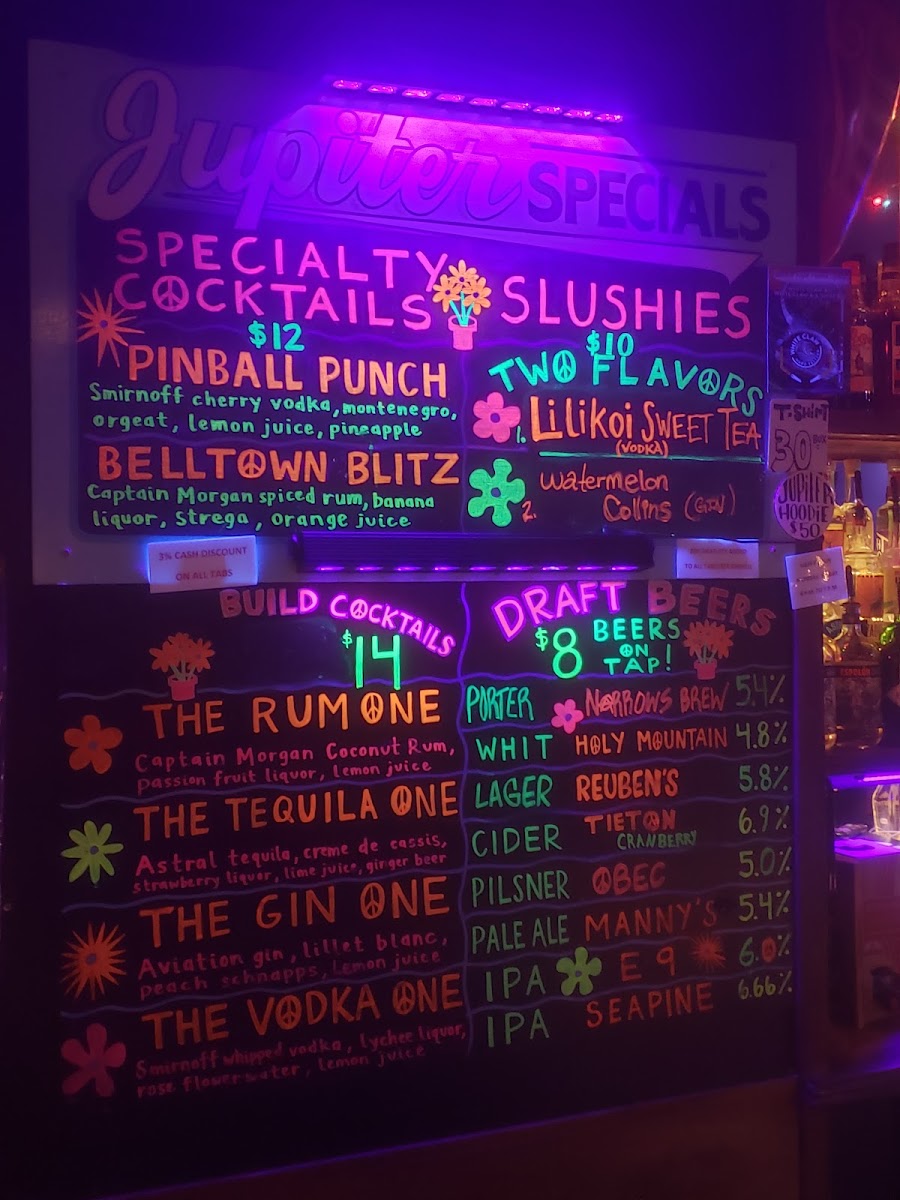 Jupiter SPECIALS
SPECIALTY
COCKTAILS
$12
PINBALL PUNCH
Smirnoff cherry vodka, montenegro,
orgeat, lemon juice, pineapple
BELLTOWN BLITZ
Captain Morgan spiced rum, banana
liquor, Strega, orange juice
SLUSHIES
$10
TWO FLAVORS
1. LiliKoi SWEET TEA
(VODKA)
2. Watermelon
Collins (GIN)
T-SHIRT
30 BUX
JUPITER
HOODIE
$50
WHITE CLAW
3% CASH DISCOUNT
ON ALL TABS
BUILD COCKTAILS
$14
THE RUM ONE
Captain Morgan Coconut Rum,
passion fruit liquor, lemon juice
THE TEQUILA ONE
Astral tequila, creme de cassis,
strawberry liquor, lime juice, ginger beer
THE GIN ONE
Aviation gin, lillet blanc,
peach schnapps, Lemon juice
THE VODKA ONE
Smirnoff whipped vodka, Lychee liquor,
rose flower water, lemon juice
DRAFT BEERS
$8 BEERS
ON
TAP!
PORTER NARROWS BREW 5.4%
WHIT HOLY MOUNTAIN 4.8%
LAGER REUBEN'S 5.8%
CIDER TIETON 6.9%
CRANBERRY
PILSNER OBEC 5.0%
PALE ALE MANNY'S 5.4%
IPA E9 6.0%
IPA SEAPINE 6.66%